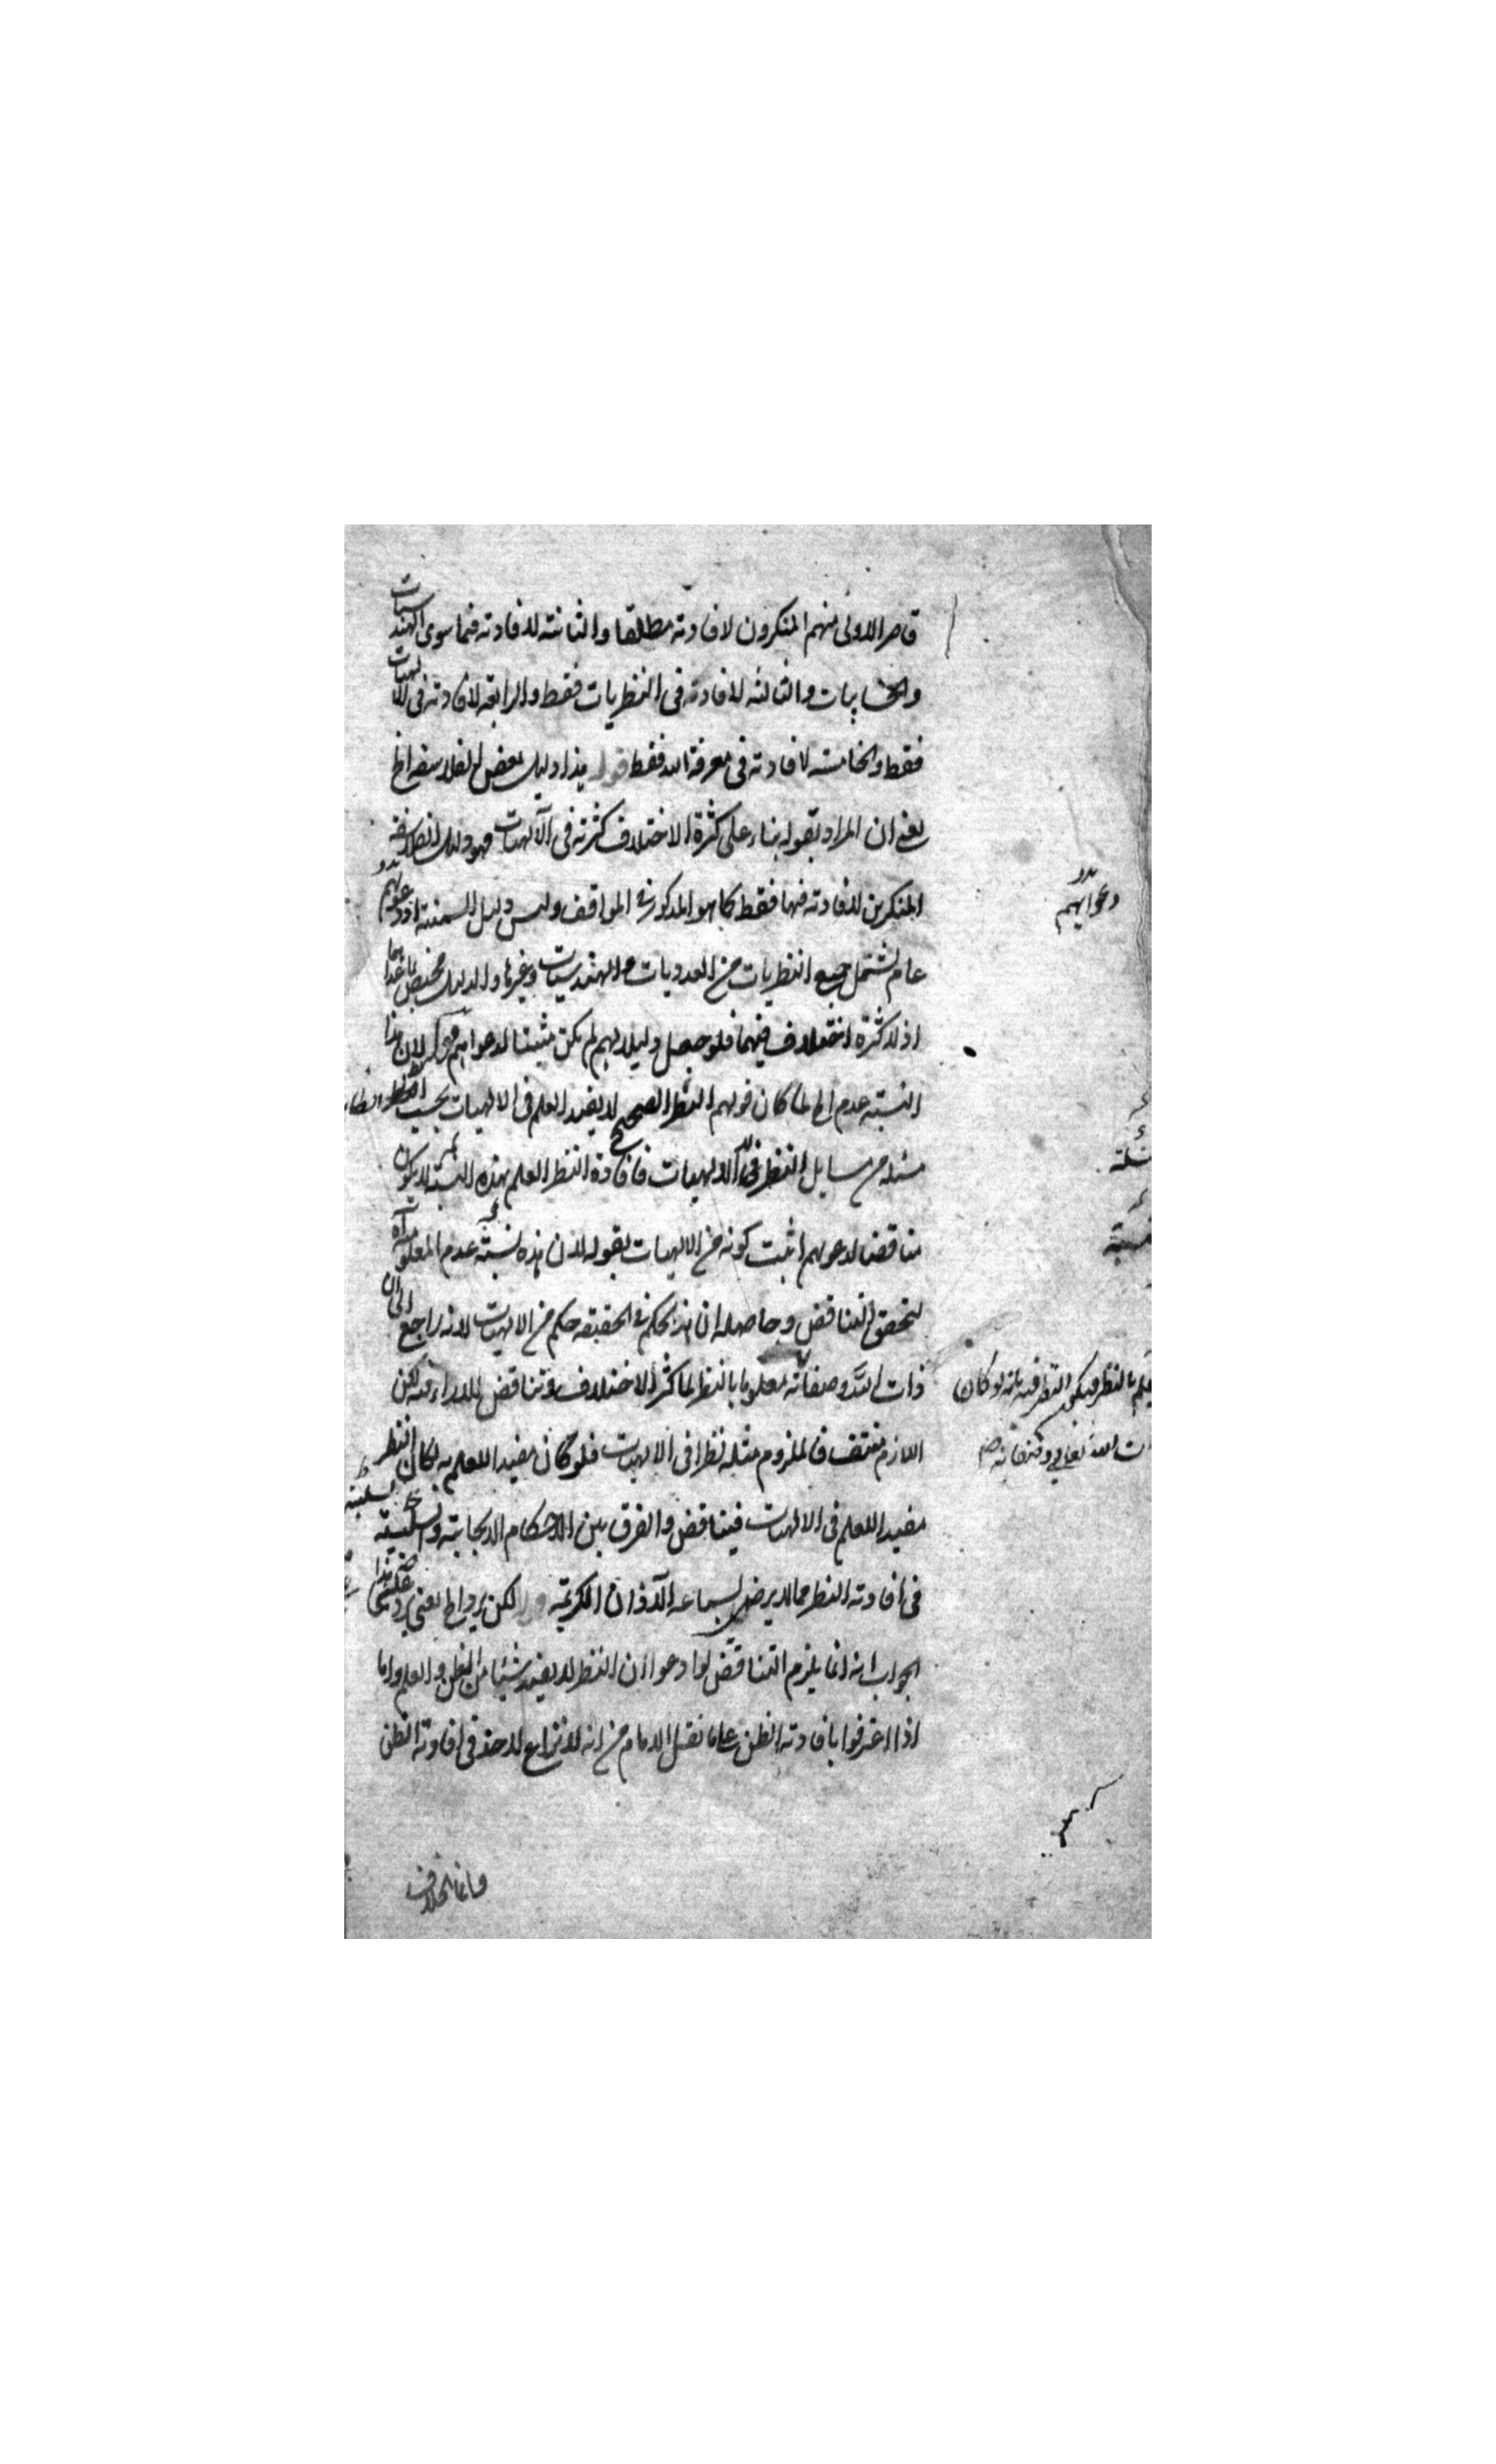 قاصر الاولى منهم المنكرون لافادته مطلقا والثانية لافادته فيما سوى الهندسيات
والحسابيات والثالثة لافادته فى النظريات فقط والرابعة لافادته فى الالهيات
فقط والخامسة لافادته فى معرفة الله فقط قوله هذا دليل بعض الفلاسفة الخ
يعنى ان المراد بقوله بناء على كثرة الاختلاف كثرته فى الآلهيات فهو دليل الفلاسفة
المنكرين لافادته فيها فقط كما هو المذكور فى المواقف وليس دليل السمنية اذ دعويهم
عام يشتمل جميع النظريات من العدديات والهندسيات وغيرها والدليل مختص بما عداهما
اذ لا كثرة اختلاف فيهما فلو جعل دليلا لهم لم يكن مثبتا لدعواهم قوله لان هذا
النسبة عدم الخ لما كان قولهم النظر الصحيح لا يفيد العلم فى الالهيات بحسب الظاهر
مسئلة من مسايل النظر فى الالهيات فافادة النظر العلم بهذه النسبة لا يكون
مناقضا لدعويهم اثبت كونه من الالهيات بقوله لان هذه نسبة عدم المعلومية
ليتحقق التناقض وحاصله ان هذا الحكم فى الحقيقة حكم من الالهيات لانه راجع الى ان
ذات الله وصفاته معلوما بالنظر لما كثر الاختلاف وتناقض الاراء فيه لكن
اللازم منتف فالملزوم مثله نظرا فى الالهيات فلو كان مفيدا للعلم به لكان النظر
مفيدا للعلم فى الالهيات فيتناقض والفرق بين الاحكام الايجابية والسلبية
فى افادته النظر مما لا يرضى لسماعه الآذان الكريمة قوله لكن يرد الخ يعنى يرد على هذا
الجواب انه انما يلزم التناقض لو ادعوا ان النظر لا يفيد شيئا من الظن والعلم واما
اذا اعترفوا بافادته الظن على ما نقل الامام من انه لا نزاع لاحد فى افادته الظن
وانما الخلاف
دعوايهم
بالنظر فيكون النظر فيه بانه لو كان
ذات الله تعالى وصفاته